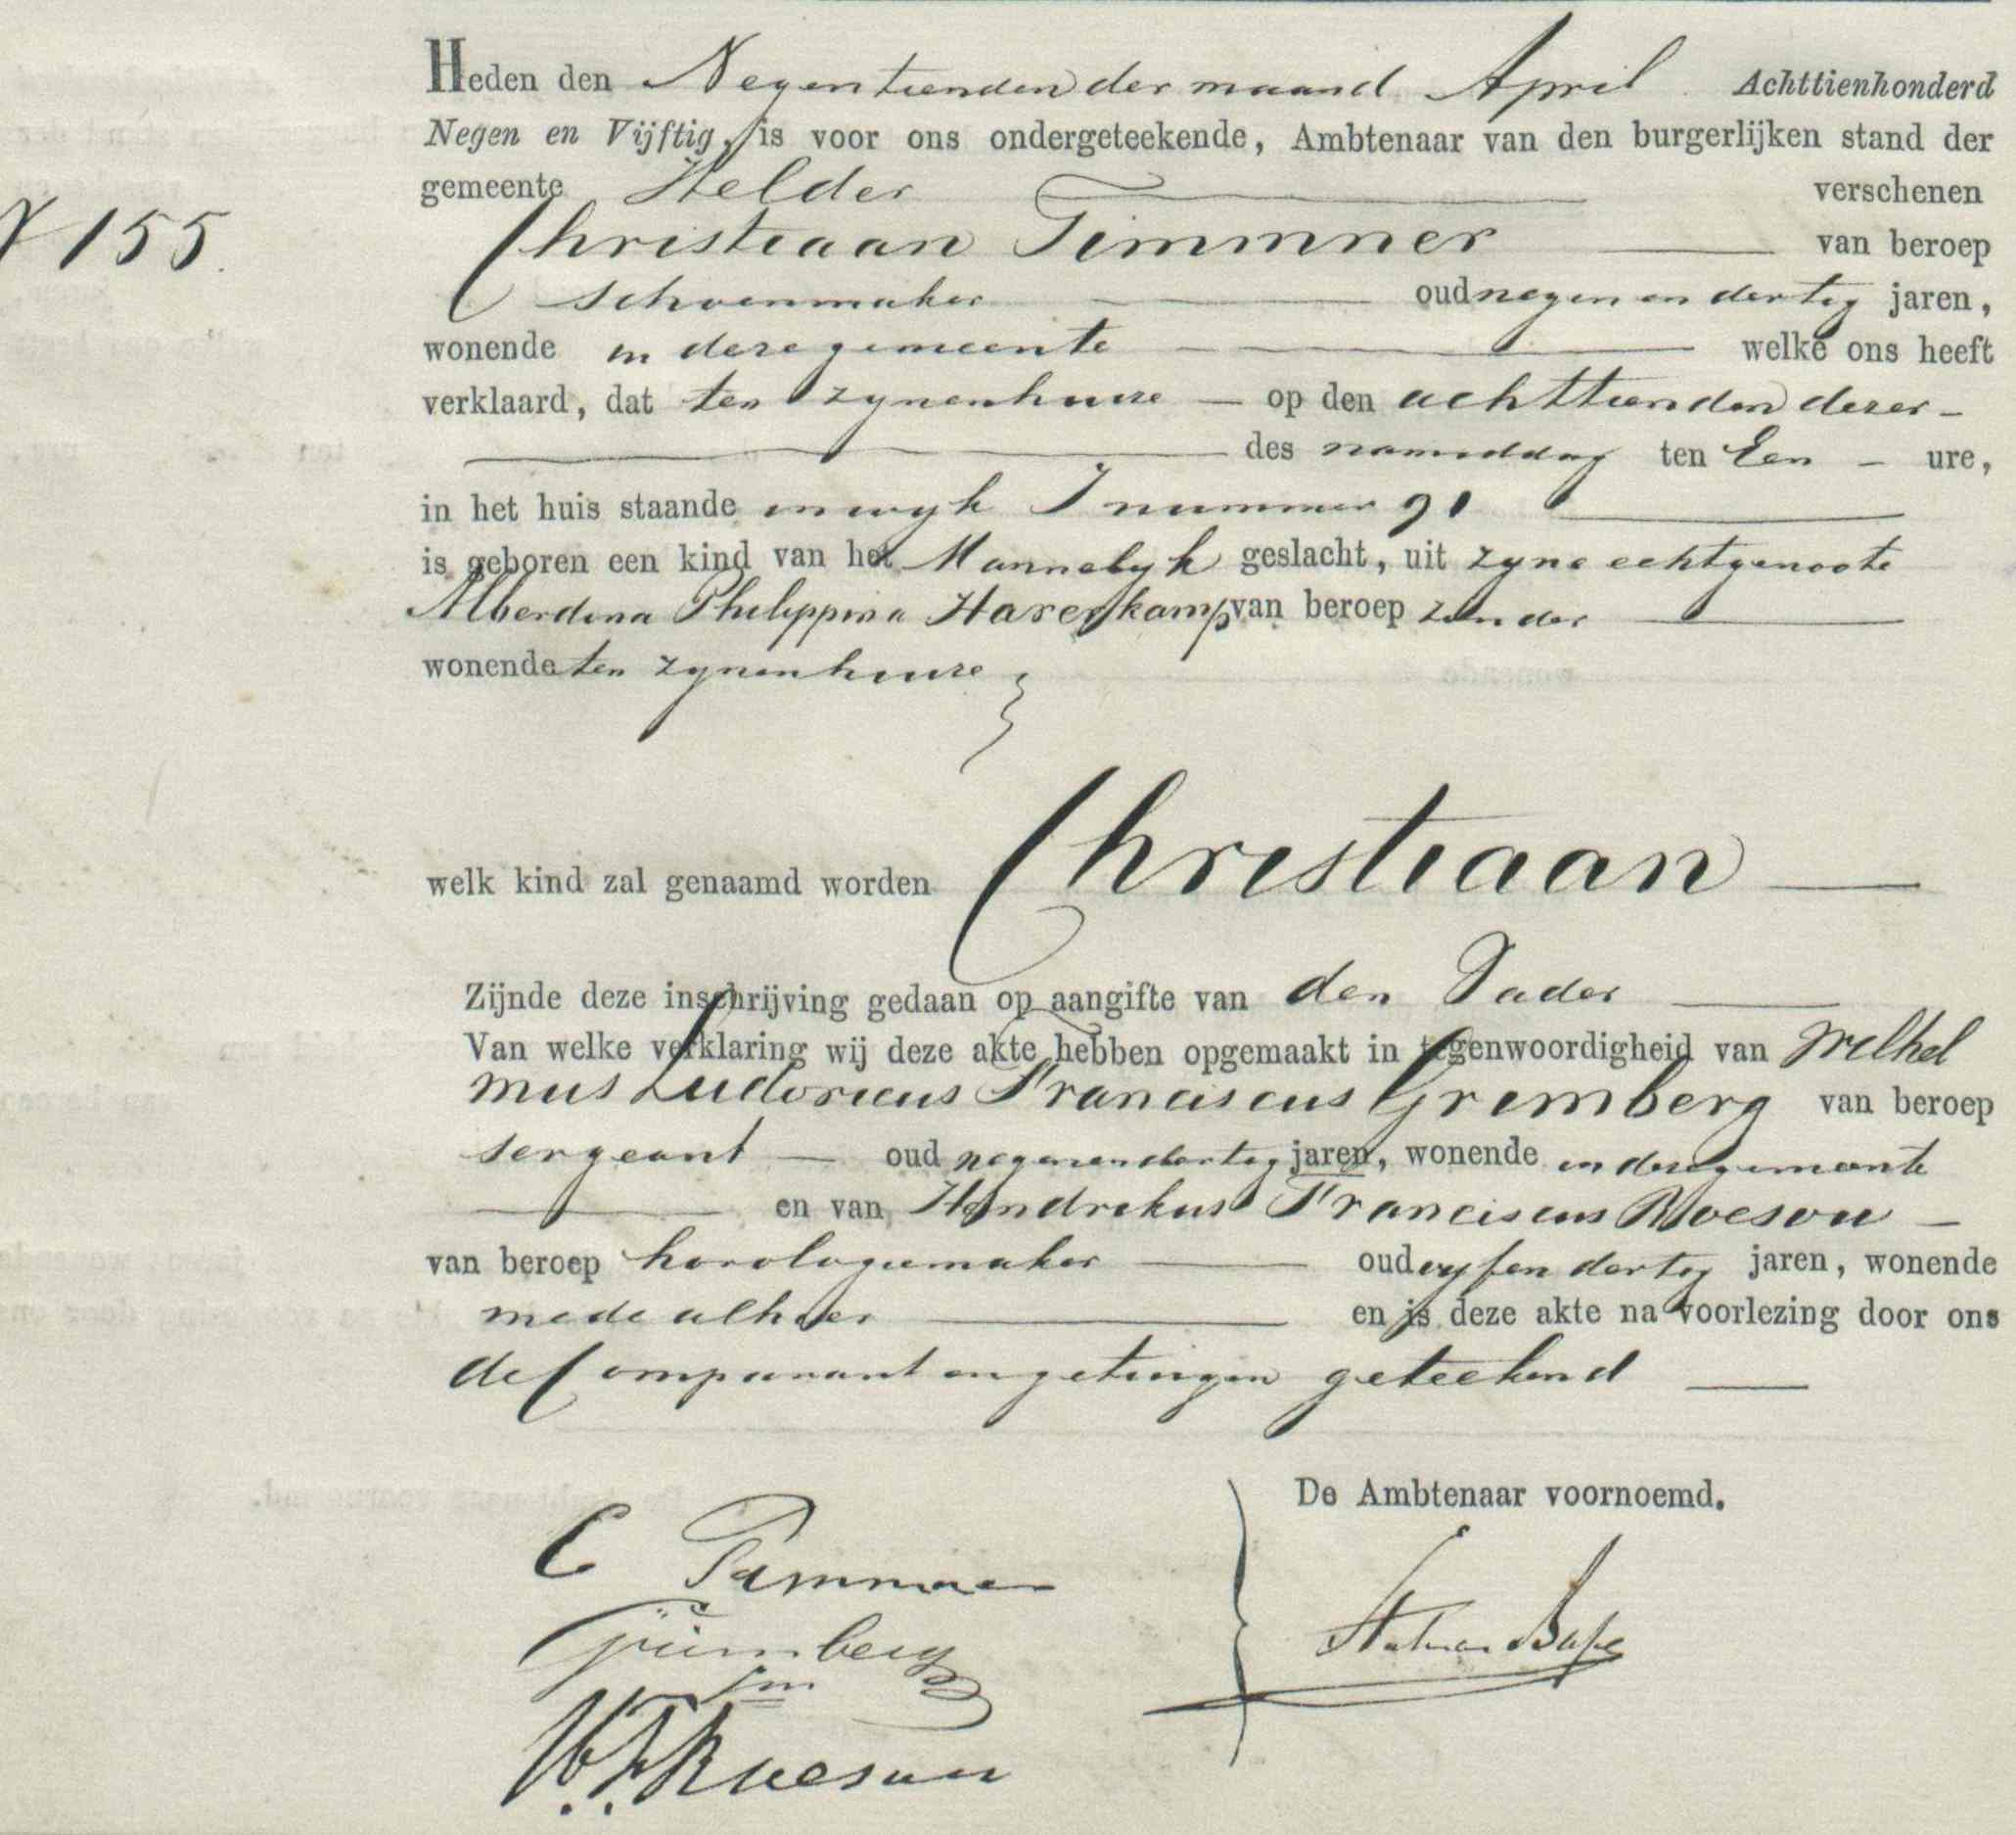 Heden den Negentienden der maand April Achttienhonderd
Negen en Vijftig, is voor ons ondergeteekende, Ambtenaar van den burgerlijken stand der
gemeente Helder verschenen
N 155.
Christiaan Timmner van beroep
schoenmaker oud negen en dertig jaren,
wonende in deze gemeente welke ons heeft
verklaard, dat ten zynenhuize op den achttienden dezer
des namiddag ten Een ure,
in het huis staande in wyk J nummer 91
is geboren een kind van het Mannelyk geslacht, uit zyne echtgenoote
Alberdina Philippina Haverkamp van beroep zonder
wonende ten zynenhuize
welk kind zal genaamd worden Christiaan
Zijnde deze inschrijving gedaan op aangifte van den Vader
Van welke verklaring wij deze akte hebben opgemaakt in tegenwoordigheid van Wilhel
mus Ludovicus Franciscus Grimberg van beroep
sergeant oud negenendertig jaren, wonende in deze gemeente
en van Hendrikus Franciscus Roesou
van beroep horologiemaker oud vyfendertig jaren, wonende
mede alhier en is deze akte na voorlezing door ons
de Comparant en getuigen geteekend
De Ambtenaar voornoemd.
C Timmner
Grimberg